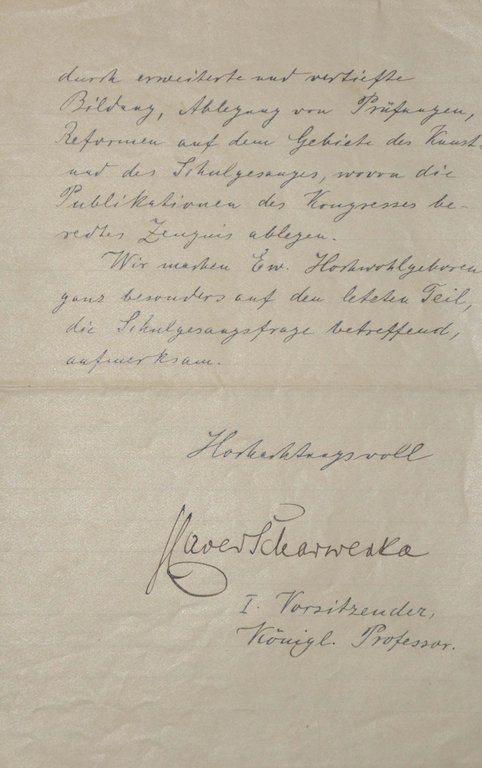 durch erweiterte und vertiefte
Bildung, Ablegung von Prüfungen,
Reformen auf dem Gebiete des Kunst-
und des Schulgesanges, wovon die
Publikationen des Kongresses be-
redtes Zeugnis ablegen.
Wir machen Ew. Hochwohlgeboren
ganz besonders auf den letzten Teil,
die Schulgesangsfrage betreffend,
aufmerksam.
Hochachtungsvoll
Xaver Scharwenka
I. Vorsitzender,
Königl. Professor.